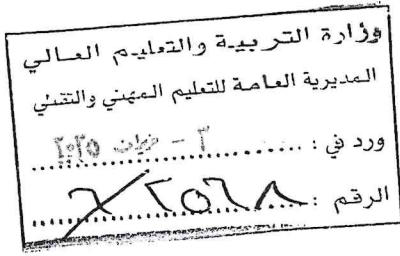 وزارة التربية والتعليم العالي
المديرية العامة للتعليم المهني والتقني
ورد في : ٣ - ٢٠٢٥
الرقم : ٢٥٦٨